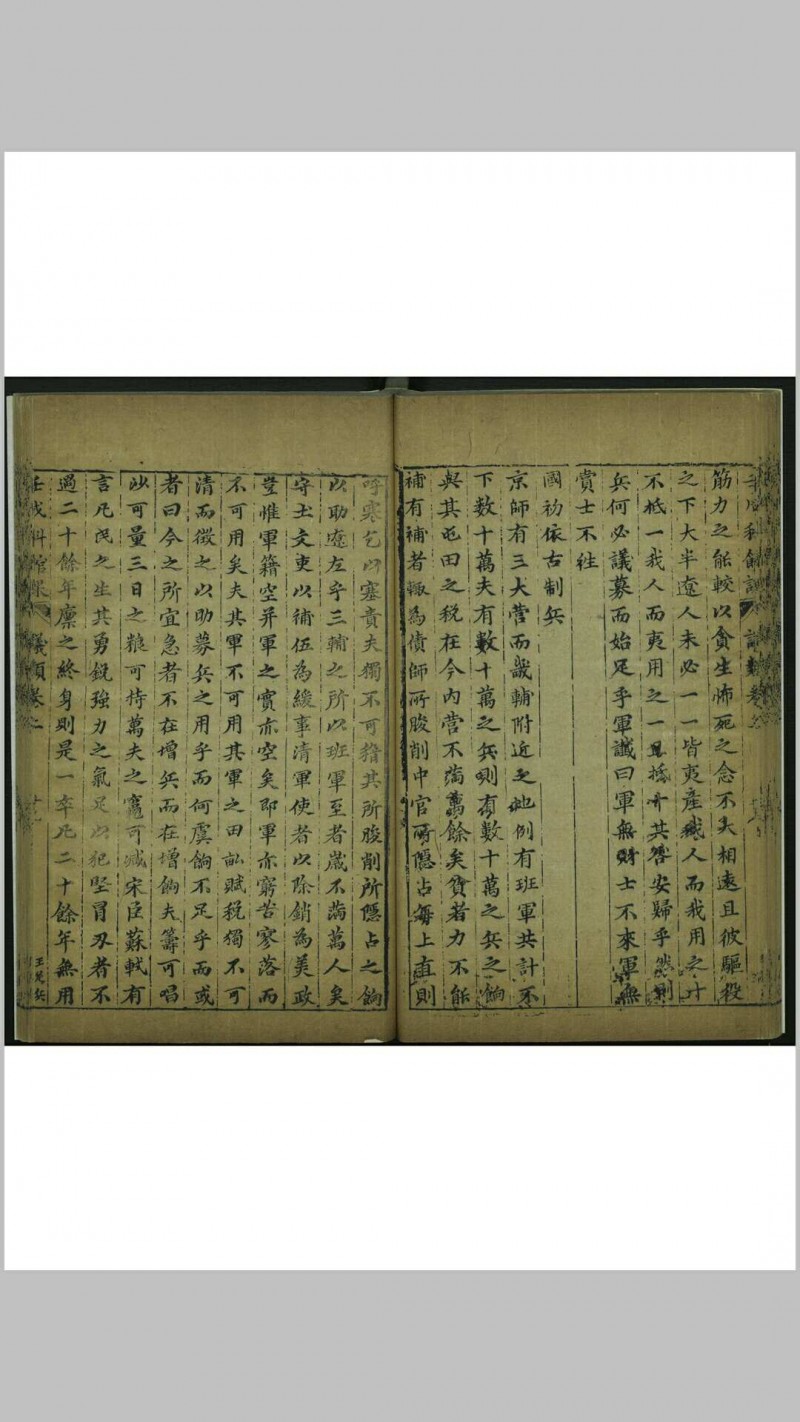 筋力之能較以貪生怖死之念不大相遠且彼驅役
之下大半遼人未必一一皆夷產纔人而我用之十
不抵一我人而夷用之一足抵十其咎安歸乎然則
兵何必議募而始足乎軍讖曰軍無財士不來軍無
賞士不往
國初依古制兵
京師有三大營而畿輔附近之地例有班軍共計不
下數十萬夫有數十萬之兵則有數十萬之兵之餉
與其屯田之稅在今內營不滿萬餘矣貧者力不能
補有補者輙為債師所朘削中官所隱占每上直則
呼寒乞以塞責夫獨不可稽其所朘削所隱占之餉
以助遼左乎三輔之所以班軍至者歲不滿萬人矣
守土文吏以補伍為緩事清軍使者以除銷為美政
豈惟軍籍空并軍之實亦空矣即軍亦窮苦寥落而
不可用矣夫其軍不可用其軍之田畝賦稅獨不可
清而徵之以助募兵之用乎而何虞餉不足乎而或
者曰今之所宜急者不在增兵而在增餉夫籌可唱
沙可量三日之糧可持萬夫之竈可減宋臣蘇軾有
言凡民之生其勇銳強力之氣足以犯堅冒刃者不
過二十餘年廩之終身則是一卒凡二十餘年無用
壬戌科館課 議類卷二 十一